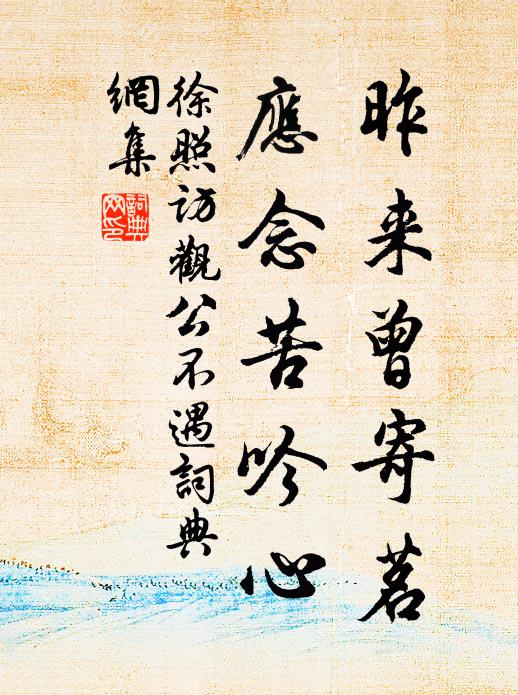 昨来曾寄茗
應念苦吟心
徐照訪觀公不遇詞典
網集
詞典
网印